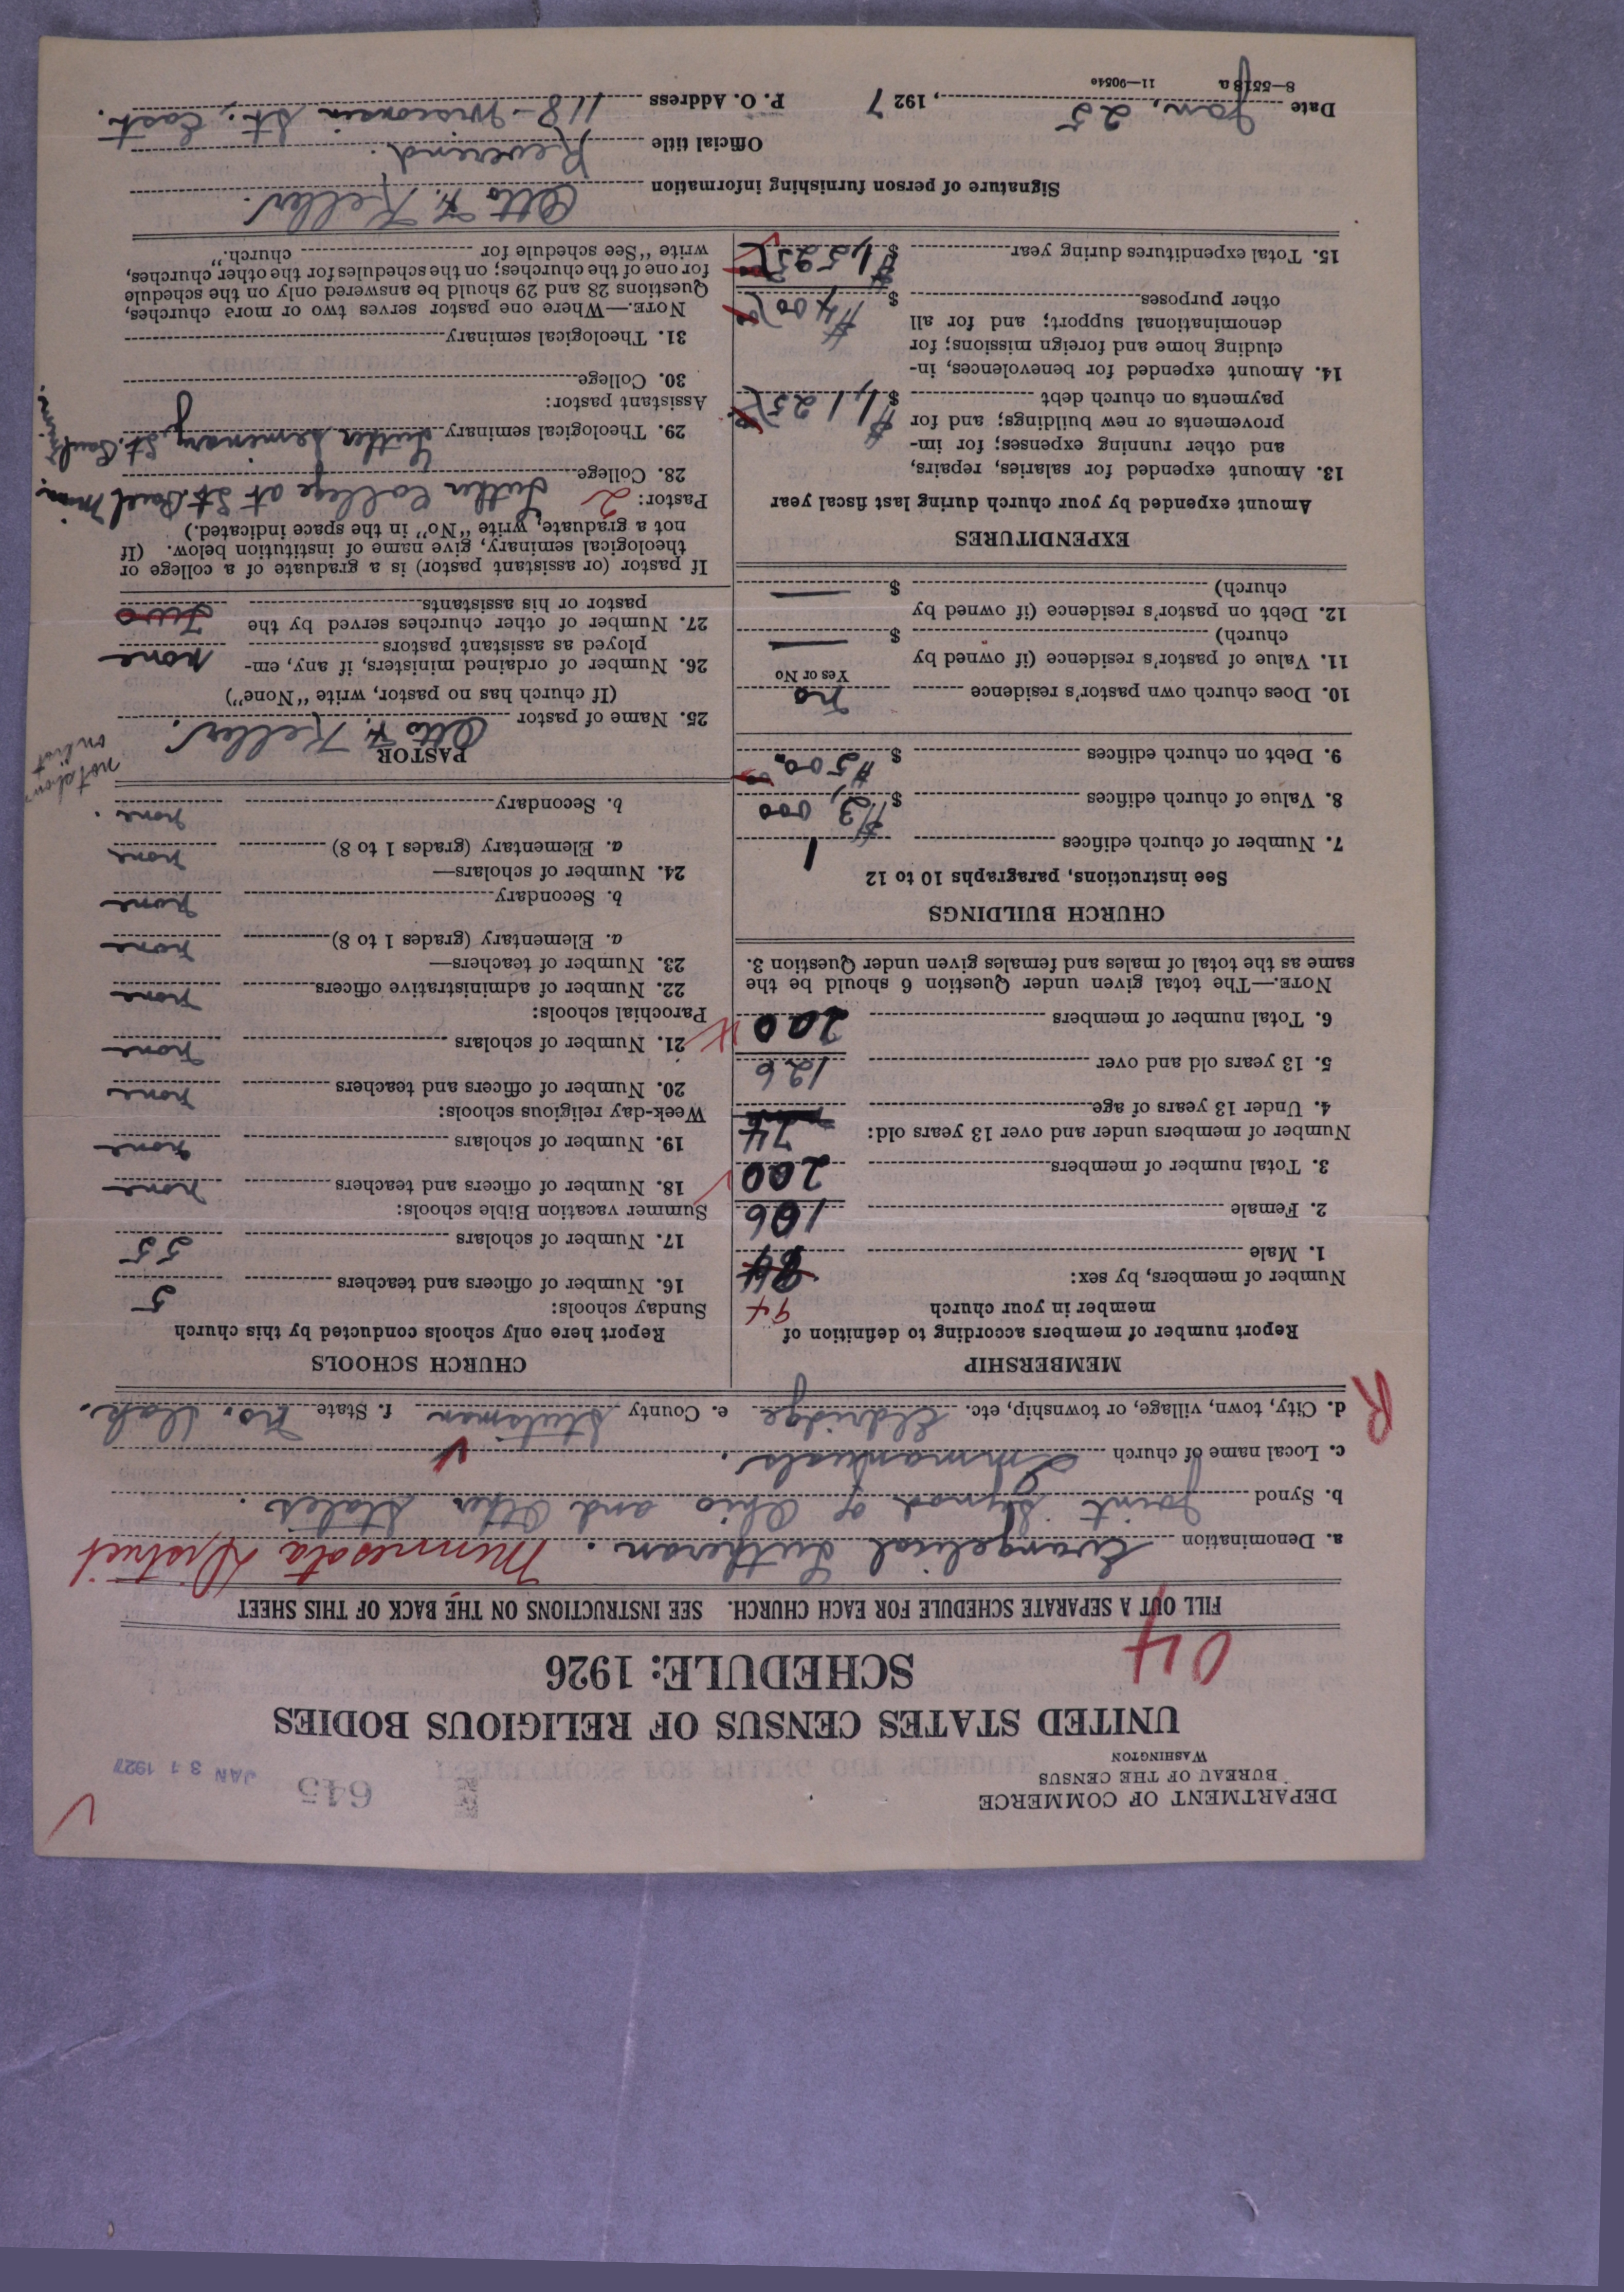 DEPARTMENT OF COMMERCE
BUREAU OF THE CENSUS
WASHINGTON
645
JAN 31 1927
UNITED STATES CENSUS OF RELIGIOUS BODIES
SCHEDULE: 1926
04
FILL OUT A SEPARATE SCHEDULE FOR EACH CHURCH. SEE INSTRUCTIONS ON THE BACK OF THIS SHEET
a. Denomination Evangelical Lutheran. Minnesota District
b. Synod Joint Synod of Ohio and Other States.
c. Local name of church Immanuels.
d. City, town, village, or township, etc. Eldridge e. County Stutsman f. State No. Dak.
R
MEMBERSHIP
Report number of members according to definition of
member in your church
Number of members, by sex: 94
1. Male 84
2. Female 106
3. Total number of members 200
Number of members under and over 13 years old:
4. Under 13 years of age 74
5. 13 years old and over 126
6. Total number of members 200
NOTE.—The total given under Question 6 should be the
same as the total of males and females given under Question 3.
CHURCH BUILDINGS
See instructions, paragraphs 10 to 12
7. Number of church edifices 1
8. Value of church edifices $ $3,000
9. Debt on church edifices $ $500.
10. Does church own pastor's residence no
Yes or No
11. Value of pastor's residence (if owned by
church) $ —
12. Debt on pastor's residence (if owned by
church) $ —
EXPENDITURES
Amount expended by your church during last fiscal year
13. Amount expended for salaries, repairs,
and other running expenses; for im-
provements or new buildings; and for
payments on church debt $ $1,125
14. Amount expended for benevolences, in-
cluding home and foreign missions; for
denominational support; and for all
other purposes $ $400
15. Total expenditures during year $ $1,525
CHURCH SCHOOLS
Report here only schools conducted by this church
Sunday schools:
16. Number of officers and teachers 5
17. Number of scholars 55
Summer vacation Bible schools:
18. Number of officers and teachers none
19. Number of scholars none
Week-day religious schools:
20. Number of officers and teachers none
21. Number of scholars none
Parochial schools:
22. Number of administrative officers none
23. Number of teachers—
a. Elementary (grades 1 to 8) none
b. Secondary none
24. Number of scholars—
a. Elementary (grades 1 to 8) none
b. Secondary none.
PASTOR
not
on list
25. Name of pastor Otto F. Keller.
(If church has no pastor, write "None")
26. Number of ordained ministers, if any, em-
ployed as assistant pastors none
27. Number of other churches served by the
pastor or his assistants Two
If pastor (or assistant pastor) is a graduate of a college or
theological seminary, give name of institution below. (If
not a graduate, write "No" in the space indicated.)
Pastor: 2
28. College Luther College at St. Paul Minn.
29. Theological seminary Luther Seminary, St. Paul, Minn.
Assistant pastor:
30. College
31. Theological seminary
NOTE.—Where one pastor serves two or more churches,
Questions 28 and 29 should be answered only on the schedule
for one of the churches; on the schedules for the other churches,
write "See schedule for church."
Signature of person furnishing information Otto F. Keller.
Official title Reverend.
Date Jan, 25, 1927 P. O. Address 118 - Wisconsin St., East.
8—5518a 11—9054o